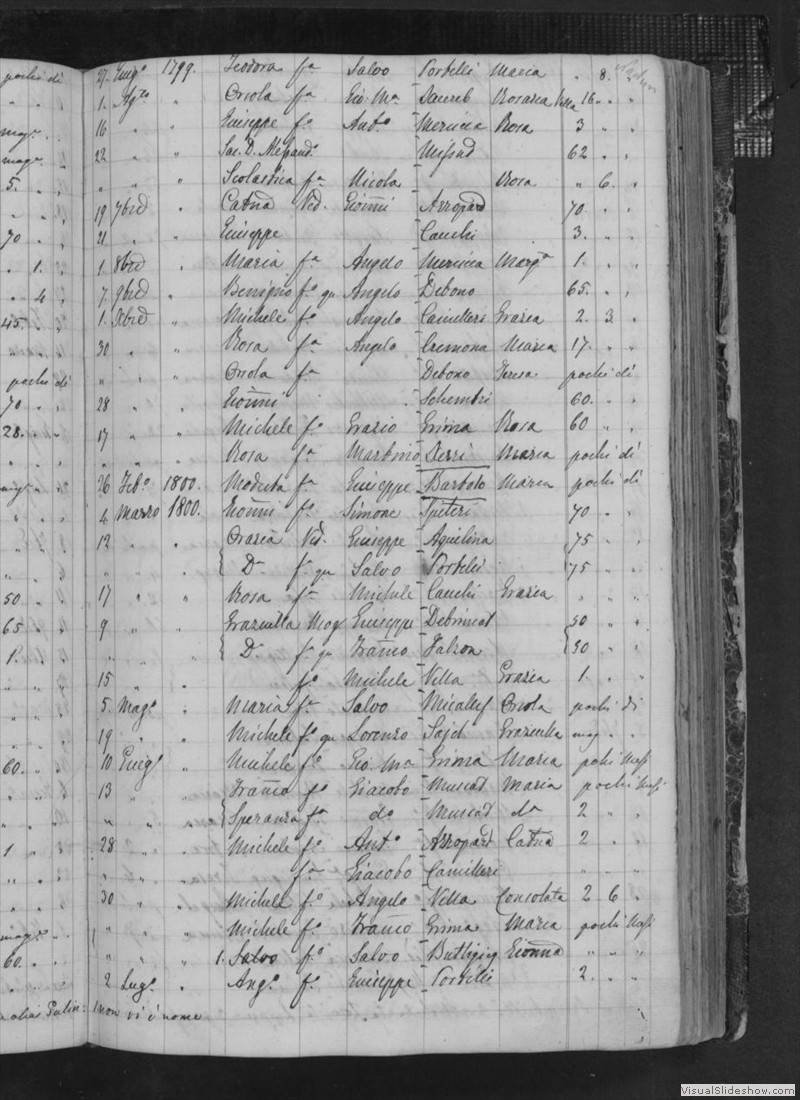 27 Giug.º 1799. Teodora f.a Salvo Portelli Maria " 8. "
1. Ag.to " Orsola f.a Gio. M.a Rosaria 16 " "
16 " " Giuseppe f.o Ant.o Mercieca Rosa 3 " "
22 " " Sac. D. Alessand.o Mifsud 62 " "
" " " Scolastica f.a Nicola Rosa " 6. "
19 7bre " Cat.na Ved. Gio:nni Azzopard 70. " "
21 " " Giuseppe Cauchi 3. " "
1. 8bre " Maria f.a Angelo Mercieca Marg.ta 1. " "
7. 9bre " Benigno f.o qu Angelo Debono 65. " "
1. Xbre " Michele f.o Angelo Camilleri Grazia 2. 3. "
30 " " Rosa f.a Angelo Cremona Maria 17. " "
" " " Orsola f.a Debono Teresa pochi di
28 " " Gio:nni Schembri 60. " "
17 " " Michele f.o Grazio Grima Rosa 60 " "
" " " Rosa f.a Martino Maria pochi di
26 Feb.o 1800. Modesta f.a Giuseppe Bartolo Maria pochi di
4 Marzo 1800. Gio:nni f.o Simone Spiteri 70 " "
12 " " Grazia Ved. Giuseppe Aquilina 75 " "
" " " D.a f.a qu Salvo Portelli 75 " "
17 " " Rosa f.a Michele Cauchi Grazia " " "
9 " " Graziulla Mog Giuseppe Debrincat 50 " "
" " " D.a f.a qu Fran:co Falzon 50 " "
15 " " f.o Michele Vella Grazia 1. " "
5. Mag.o " Maria f.a Salvo Micallef Orsola pochi di
19 " " Michele f.o qu Lorenzo Graziulla mag. " "
10 Giug.o " Michele f.o Gio. M.a Grima Maria pochi Mesi
13 " " Fran:co f.o Giacobo Muscat Maria pochi Mesi
" " " Speranza f.a d.o Muscat d.a 2 " "
28 " " Michele f.o Ant.o Azzopard Cat.na 2 " "
" " " f.a Giacobo Camilleri " " "
30 " " Michele f.o Angelo Vella Consolata 2 6 "
" " " Michele f.o Fran:co Grima Maria pochi Mesi
1. Salvo f.o Salvo Buttigieg Gio:nna " " "
2 Lug.o " Ang.o f.o Giuseppe Portelli 2. " "
1 non vi è nome
pochi di
mag.
mag.
5.
70
1.
4
45.
pochi di
70
28.
50
65
1.
60.
1
mag.
60.
alias
VisualSlideshow.com